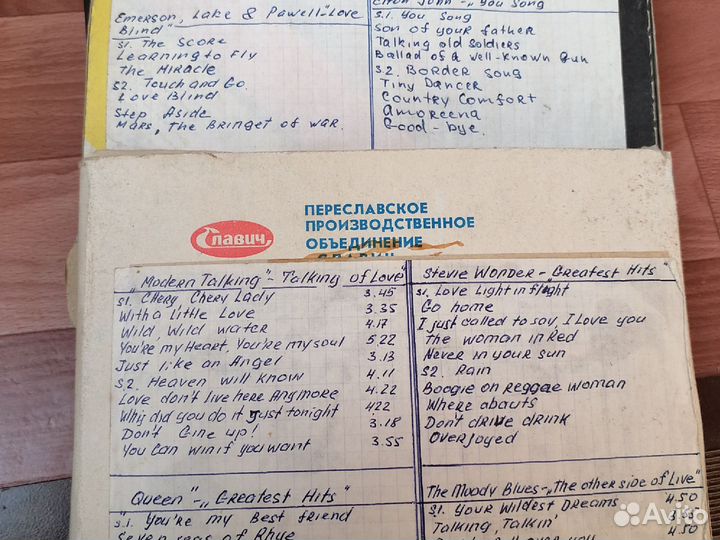 Emerson, Lake & Pawell "Love
Blind"
S1. The Score
Learning to Fly
The Miracle
S2. Touch and Go.
Love Blind
Step Aside
Mars, The Bringet of war.
Elton John - „You Song
S.1. You Song
Son of your father
Talking old soldiers
Ballad of a well-known Gun
S2. Border Song
Tiny Dancer
Country Comfort
Amoreena
Good-bye.
Славич
ПЕРЕСЛАВСКОЕ
ПРОИЗВОДСТВЕННОЕ
ОБЪЕДИНЕНИЕ
„Modern Talking" - Talking of Love
S1. Chery Chery Lady 3.45
With a Little Love 3.35
Wild, Wild water 4.17
You're my Heart, You're my soul 5.22
Just like an Angel 3.13
S2. Heaven will know 4.11
Love don't live here Anymore 4.22
Why did you do it just tonight 422
Don't Give up! 3.18
You can win if you want 3.55
Stevie Wonder - „Greatest Hits"
S1. Love Light in flight
Go home
I just called to say, I Love you
The woman in Red
Never in your sun
S2. Rain
Boogie on Reggae woman
Where abauts
Don't drive drink
Overjoyed
„Queen" - „Greatest Hits"
S.1. You're my Best friend
Seven seas of Rhye
The Moody Blues - „The other side of Live"
S1. Your Wildest Dreams 4.50
Talking, Talkin'
4.50
Avito